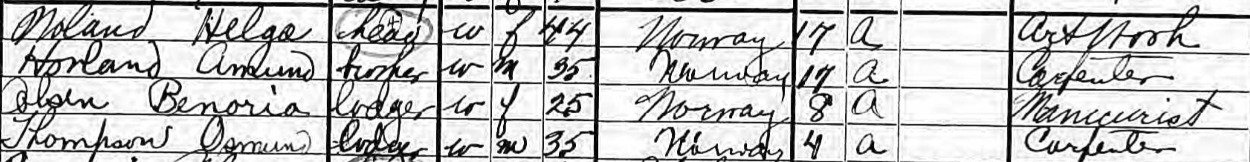 Noland Helga head w f 44 Norway 17 a Art Work
Hovland Amund brother w m 35 Norway 17 a Carpenter
Olsen Benoria lodger w f 25 Norway 8 a Manicurist
Thompson Osmund lodger w m 35 Norway 4 a Carpenter